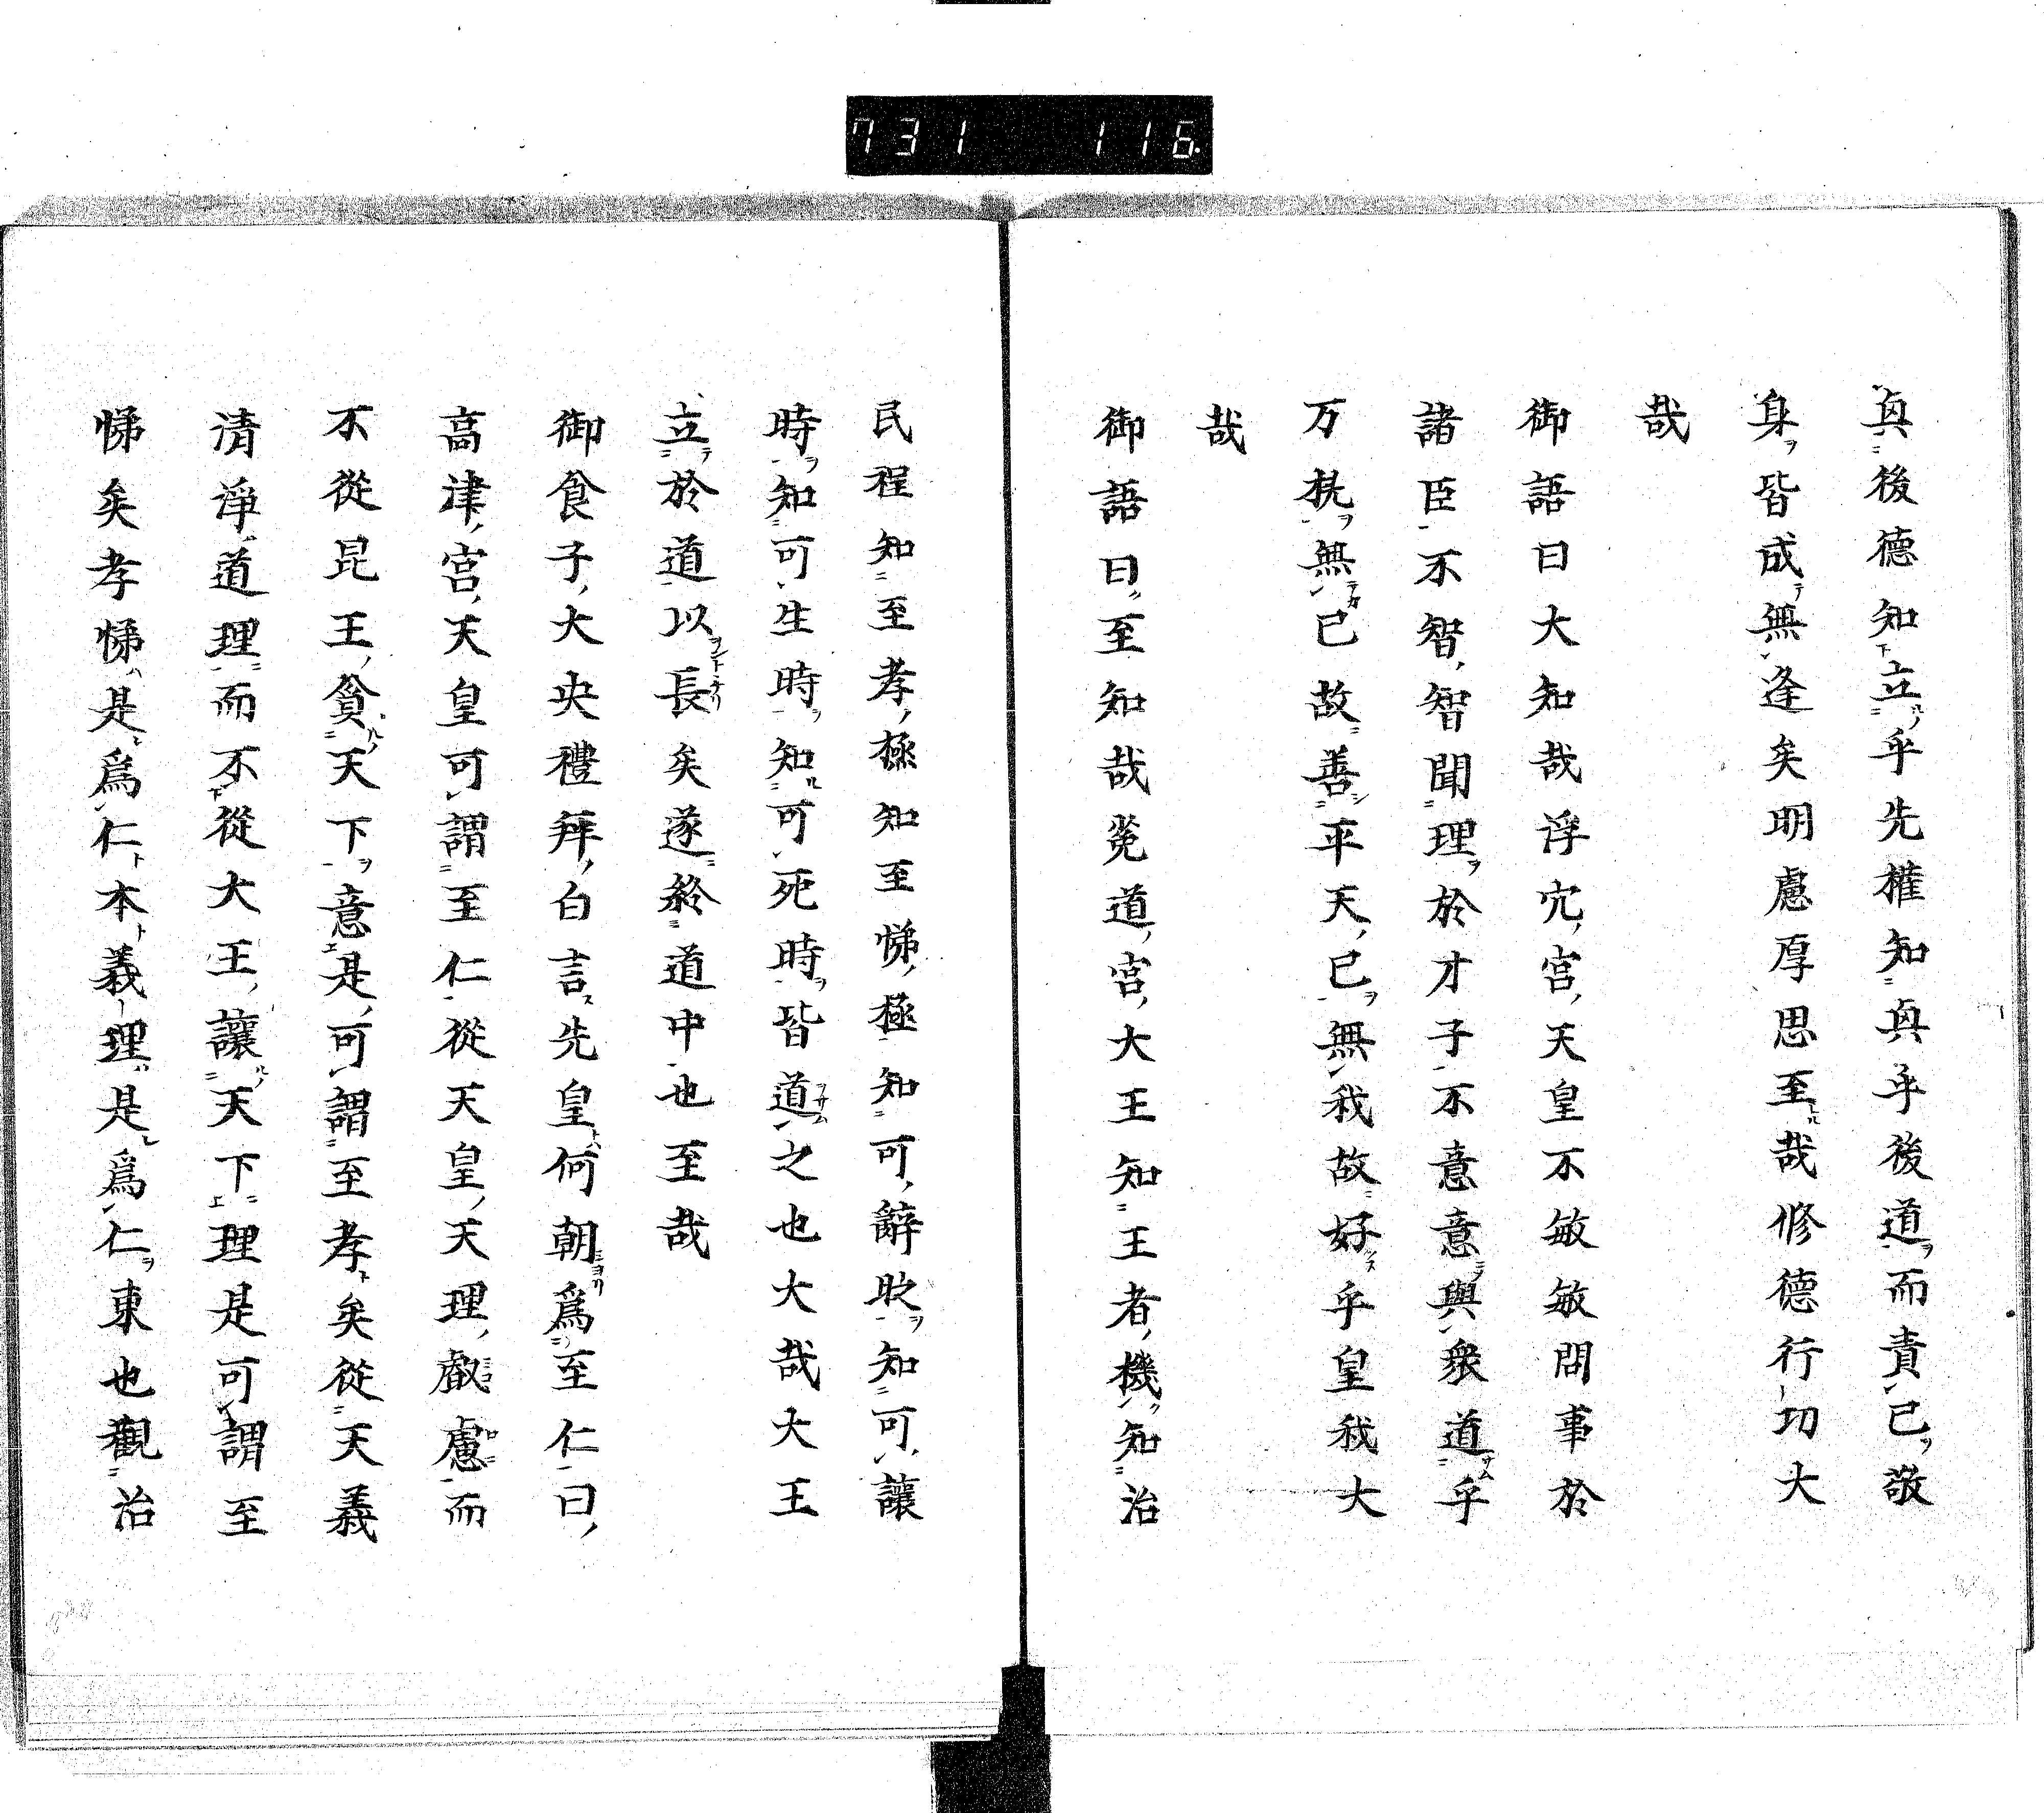 731 116
真後德知立乎先權知真乎後道而責己敬
身皆成無逢矣明慮厚思至哉修德行切大
哉
御語曰大知哉浮穴宮天皇不敏敏問事於
諸臣不智智聞理於才子不意意與衆道乎
万机無己故善平天己無我故好乎皇我大
哉
御語曰至知哉菟道宮大王知王者機知治
民程知至孝極知至悌極知可辭取知可讓
時知可生時知可死時皆道之也大哉大王
立於道以長矣遂於道中也至哉
御食子大央禮拜白言先皇何朝爲至仁曰
高津宮天皇可謂至仁從天皇天理叡慮而
不從昆王貪天下意是可謂至孝矣從天義
清淨道理而不從大王讓天下理是可謂至
悌矣孝悌是爲仁本義理是爲仁東也觀治